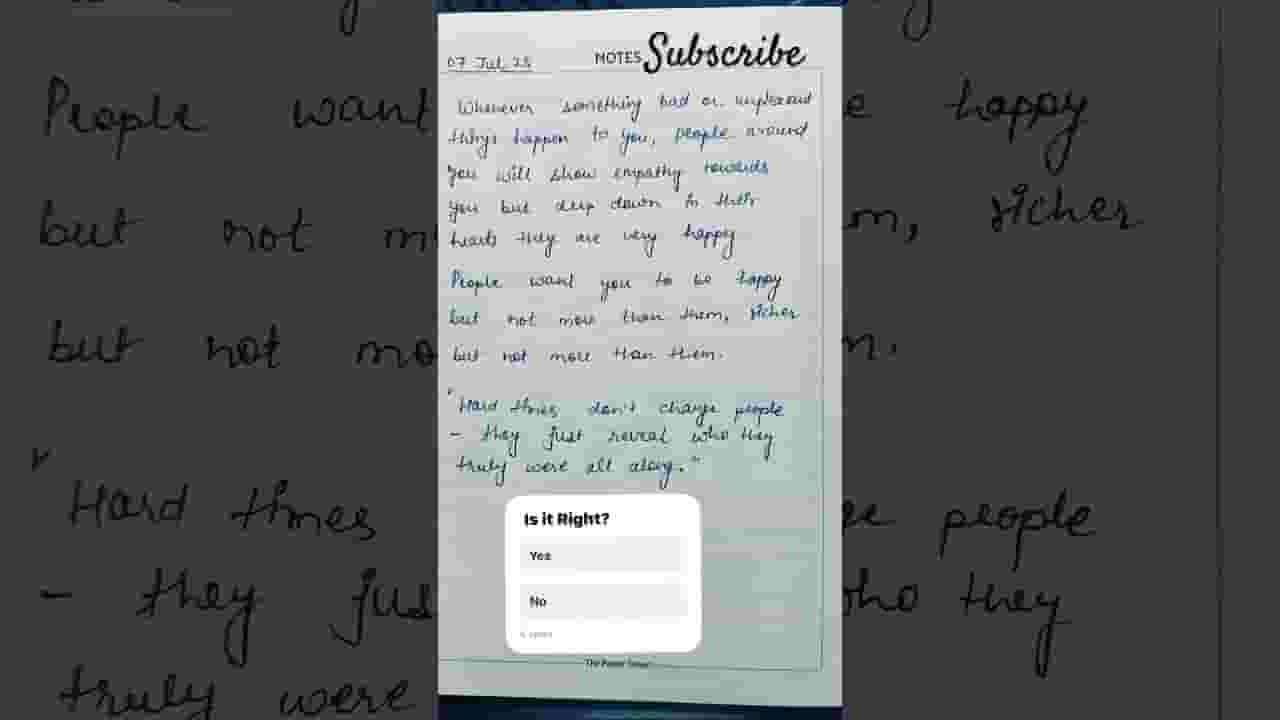 07 Jul 25
NOTES Subscribe
Whenever something bad or unpleasant
things happen to you, people around
you will show empathy towards
you but deep down in their
hearts they are very happy
People want you to be happy
but not more than them, richer
but not more than them.
"Hard times don't change people
- they just reveal who they
truly were all along."
Is it Right?
Yes
No
People want
happy
but not
m, richer
but not mo
m.
Hard times
people
- they jus
who they
truly were